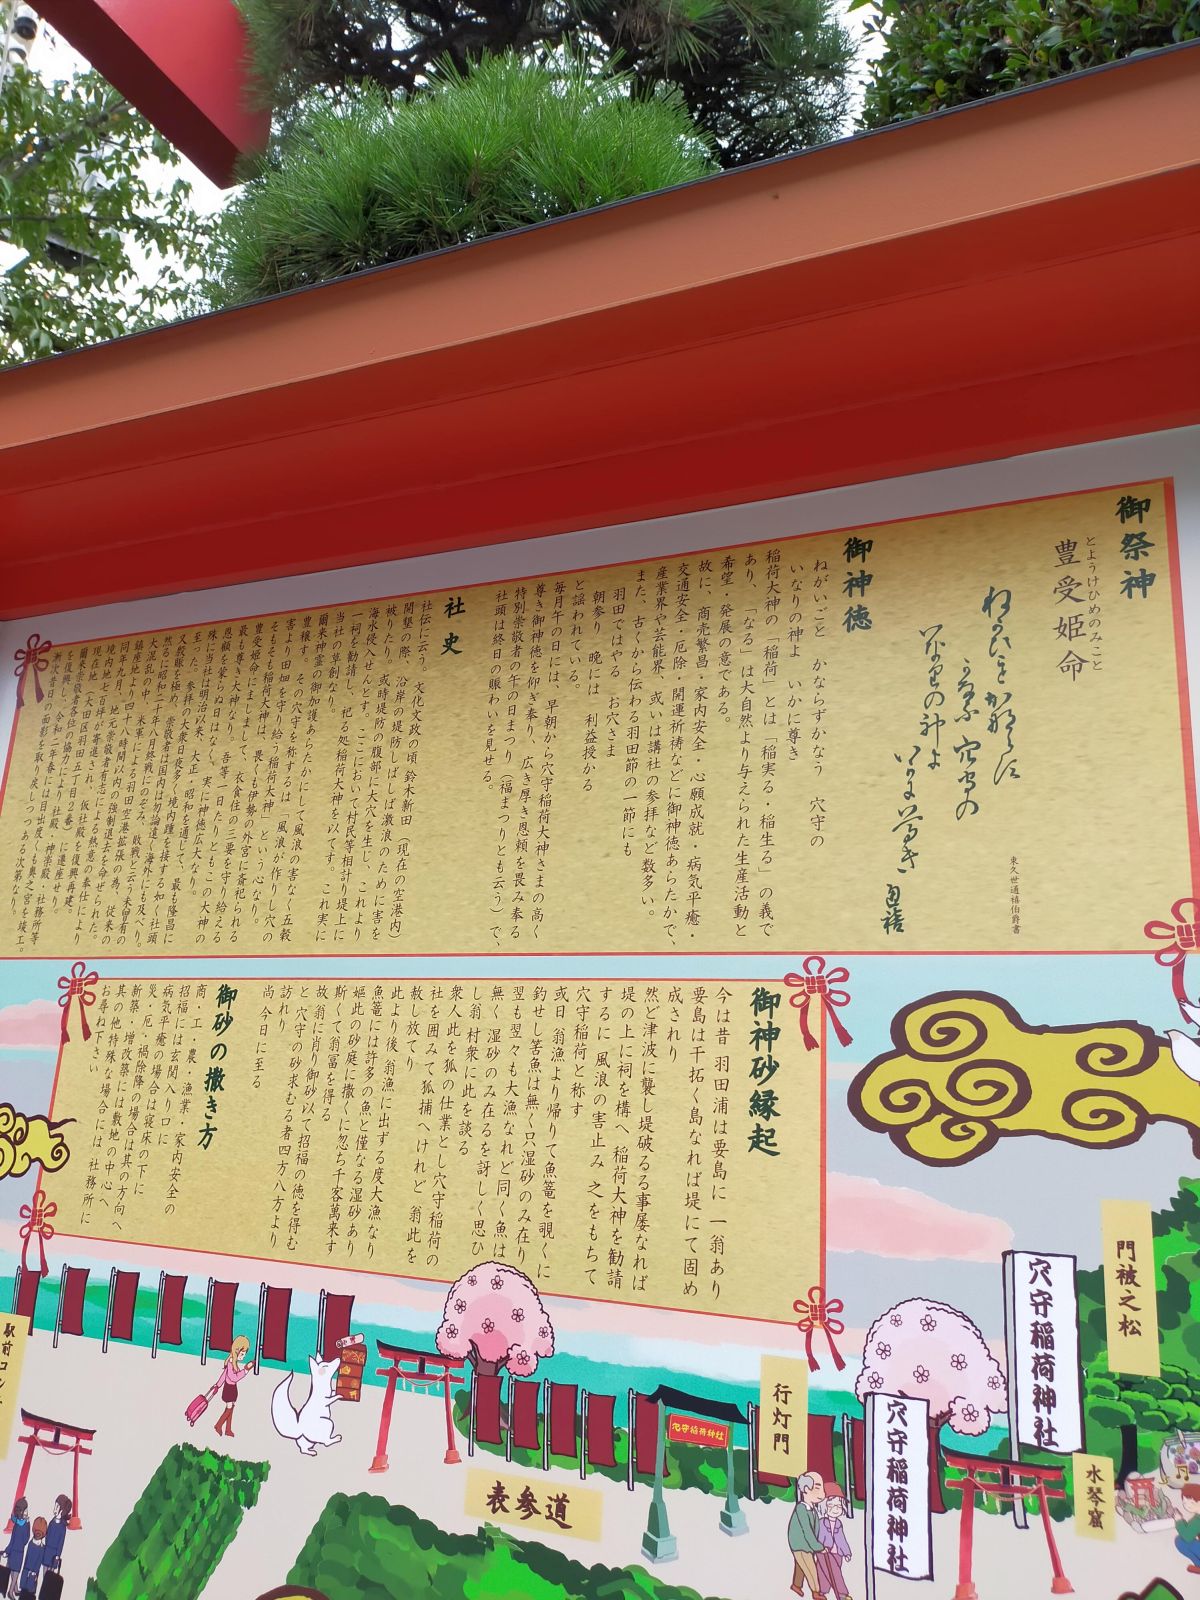 御祭神
とようけひめのみこと
豊受姫命
東久世通禧伯爵書
御神徳
ねがいごと かならずかなう 穴守の
いなりの神よ いかに尊き
稲荷大神の「稲荷」とは「稲実る・稲生る」の義で
あり、「なる」は大自然より与えられた生産活動と
希望・発展の意である。
故に、商売繁昌・家内安全・心願成就・病気平癒・
交通安全・厄除・開運祈祷などに御神徳あらたかで、
産業界や芸能界、或いは講社の参拝など数多い。
また、古くから伝わる羽田節の一節にも
羽田ではやる お穴さま
朝参り 晩には 利益授かる
と謡われている。
毎月午の日には、早朝から穴守稲荷大神さまの高く
尊き御神徳を仰ぎ奉り、広き厚き恩頼を畏み奉る
特別崇敬者の午の日まつり(福まつりとも云う)で、
社頭は終日の賑わいを見せる。
社史
社伝に云う。文化文政の頃 鈴木新田(現在の空港内)
開墾の際、沿岸の堤防しばしば激浪のために害を
被りたり。或時堤防の腹部に大穴を生じ、これより
海水侵入せんとす。ここにおいて村民等相計り堤上に
一祠を勧請し、祀る処稲荷大神を以てす。これ実に
当社の草創なり。
爾来神霊の御加護あらたかにして風浪の害なく五穀
豊穣す。その穴守を称するは「風浪が作りし穴の
害より田畑を守り給う稲荷大神」という心なり。
そもそも稲荷大神は、畏くも伊勢の外宮に斎祀られる
豊受姫命にましまして、衣食住の三要を守り給える
最も尊き大神なり。吾等一日たりともこの大神の
恩頼を蒙らぬ日はなく、実に神徳広大なり。
殊に当社は明治以来、大正・昭和を通じて、最も隆昌に
至った。参拝の大衆日夜多く境内踵を接する如く社頭
又殷賑を極め、崇敬者は国内は勿論遠く海外にも及べり。
然るに昭和二十年八月終戦にのぞみ、敗戦と云う未曽有の
大混乱の中、米軍による羽田空港拡張の為、従来の
鎮座地より四十八時間以内の強制退去を命ぜられた。
同年九月、地元崇敬者有志による熱意の奉仕により
境内地七百坪が寄進され、仮社殿を復興再建。
現在地(大田区羽田五丁目2番)に遷座せり。
爾来崇敬者各位の協力により、社殿・神楽殿・社務所等
を復興し、令和二年春には目出度くも奥之宮を竣工。
漸次昔日の面影を取り戻しつつある次第なり。
御神砂縁起
今は昔 羽田浦は要島に 一翁あり
要島は干拓く島なれば堤にて固め
成されり
然ど津波に襲し堤破るる事屡なれば
堤の上に祠を構へ 稲荷大神を勧請
するに 風浪の害止み 之をもちて
穴守稲荷と称す
或日 翁漁より帰りて魚篭を覗くに
釣せし筈魚は無く只湿砂のみ在り
翌も翌々も大漁なれど同く魚は
無く 湿砂のみ在るを訝しく思ひ
し翁 村衆に此を談る
衆人此を狐の仕業とし穴守稲荷の
社を囲みて狐捕へけれど 翁此を
赦し放てり
此より後 翁漁に出ずる度大漁なり
魚篭には許多の魚と僅なる湿砂あり
嫗此の砂庭に撒くに忽ち千客萬来す
斯くて翁富を得る
故 翁に肖り御砂以て招福の徳を得む
と 穴守の砂求むる者四方八方より
訪れり
尚 今日に至る
御砂の撒き方
商・工・農・漁業・家内安全の
招福には玄関入り口に
病気平癒の場合は寝床の下に
災・厄・禍除降の場合は其の方向へ
新築・増改築には敷地の中心へ
其の他 特殊な場合には 社務所に
お尋ね下さい
門被之松
穴守稲荷神社
行灯門
穴守稲荷神社
穴守稲荷神社
水琴窟
表参道